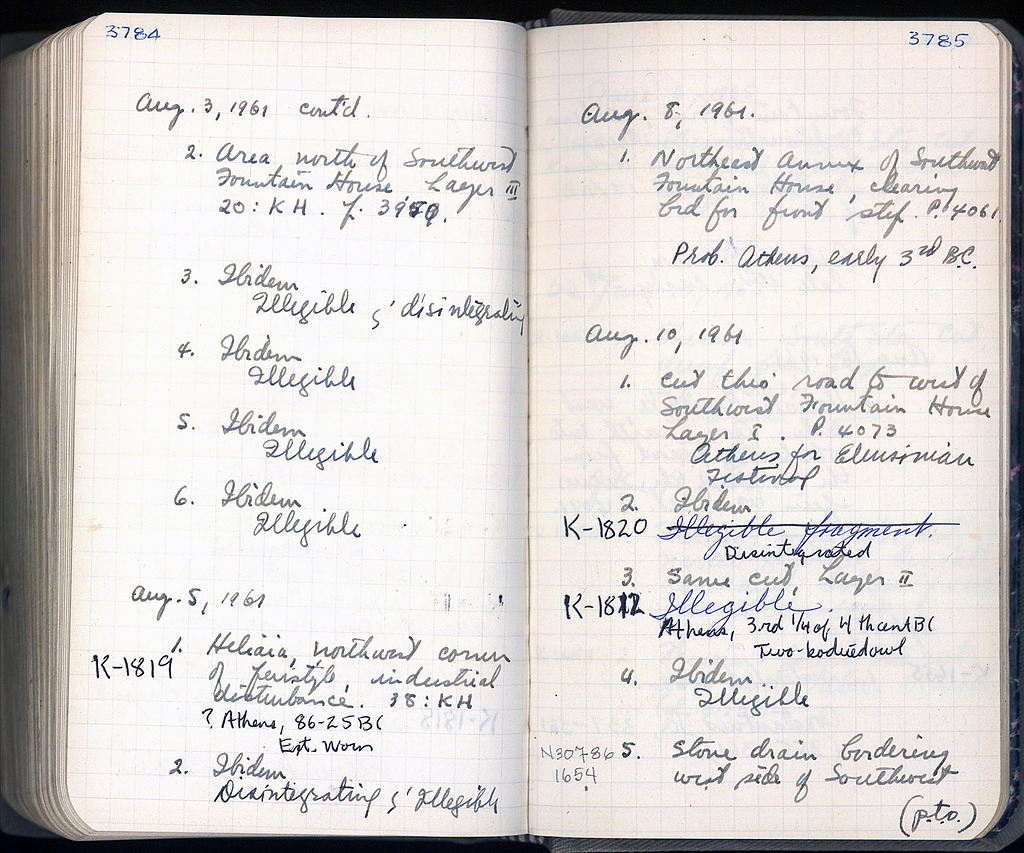 3784
Aug. 3, 1961 cont'd.
2. Area north of Southwest
Fountain House Layer III
20:KH. P.
3. Ibidem
Illegible & disintegrating
4. Ibidem
Illegible
5. Ibidem
Illegible
6. Ibidem
Illegible
Aug. 5, 1961
1. Heliaia, northwest corner
K-1819 of peristyle, industrial
disturbance. 38:KH
? Athens, 86-25 BC
Ext. Worn
2. Ibidem
Disintegrating & Illegible
3785
Aug. 8, 1961.
1. Northeast Annex of Southwest
Fountain House, clearing
bed for front step. P. 4061
Prob. Athens, early 3rd BC.
Aug. 10, 1961
1. Cut thro' road to west of
Southwest Fountain House
Layer I. P. 4073
Athens for Eleusinian
Festival
2. Ibidem
K-1820 Illegible fragment.
Disintegrated
3. Same cut, Layer II
Illegible.
Athens, 3rd 1/4 of 4th cent BC
Two-bodied owl
4. Ibidem.
Illegible
N30786 5. Stone drain bordering
1654 west side of Southwest
(p.t.o.)